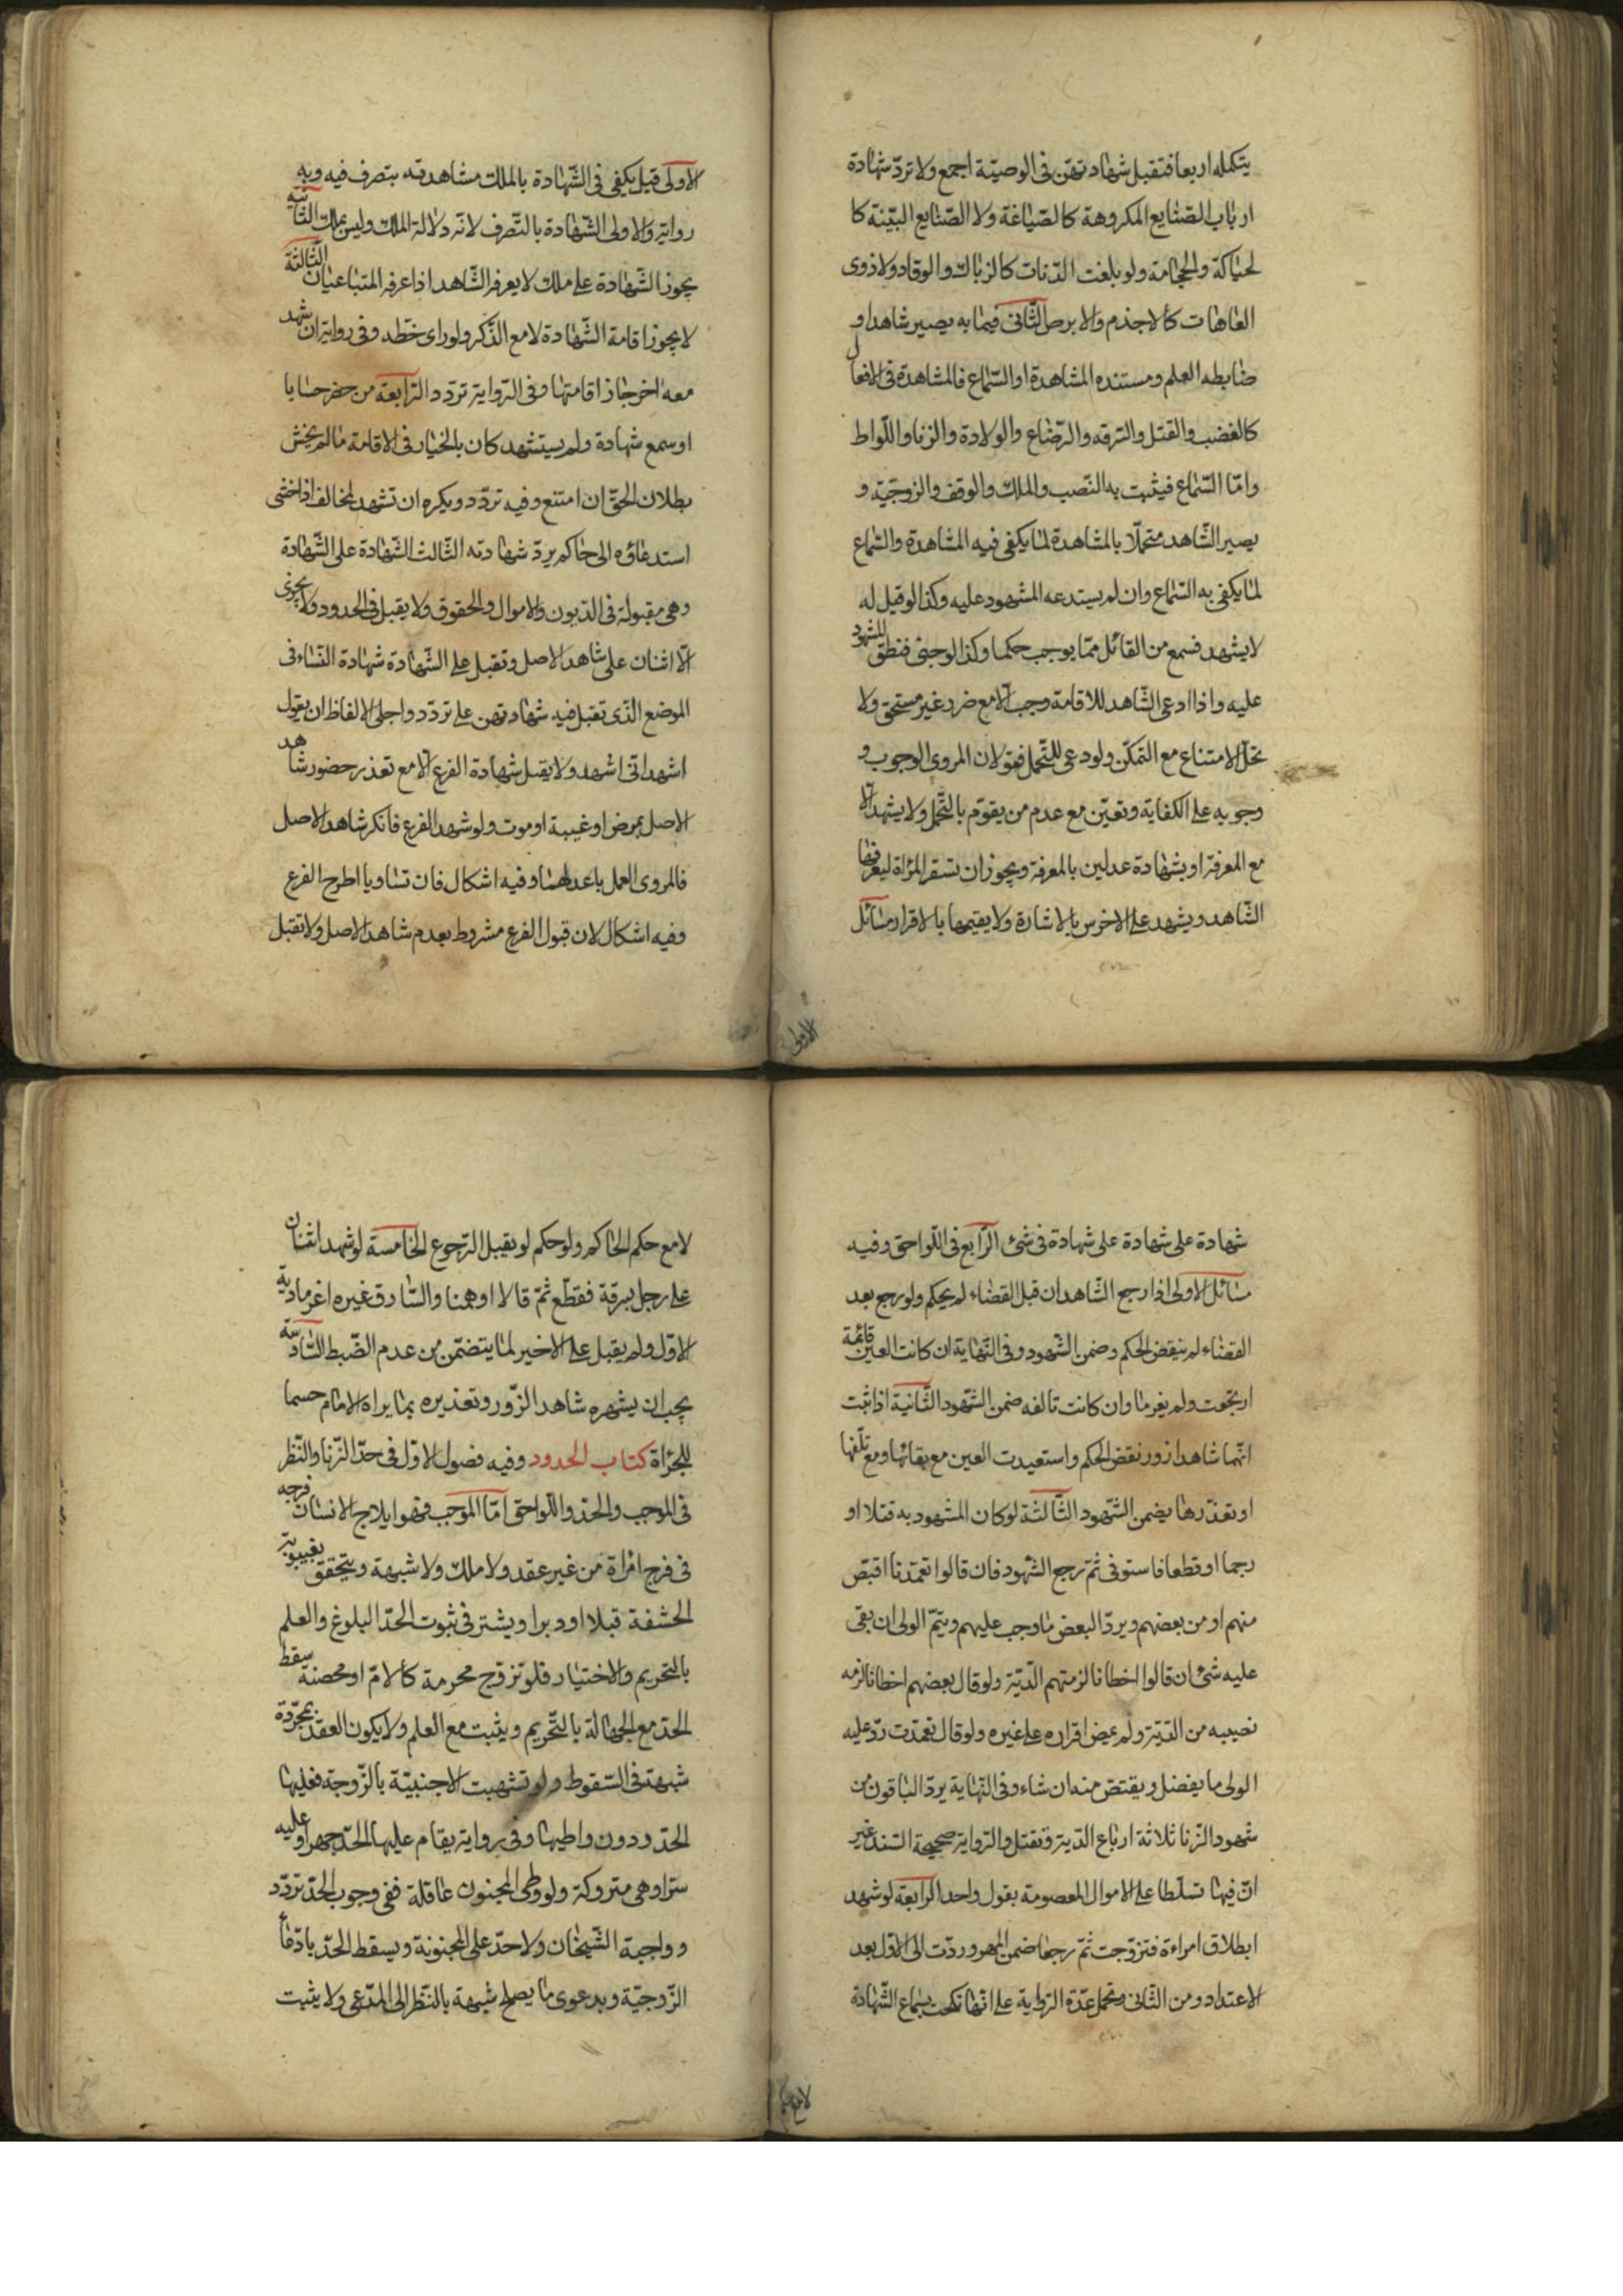 يتكمله اربعا فتقبل شهادتهن فى الوصية اجمع ولا تردّ شهادة
ارباب الصّنايع المكروهة كالصّياغة ولا الصّنايع البيّنة كا
لحياكة والحجامة ولو بلغت الدّنات كالزبال والوقاد ولا ذوى
العاهات كالاجذم والابرص الثّانى فيما به يصير شاهدا و
ضابطه العلم ومستنده المشاهدة او السّماع فالمشاهدة فى الافعال
كالغضب والقتل والسّرقه والرّضاع والولادة والزنا واللّواط
وامّا السّماع فيثبت به النّصب والملك والوقف والزوجيّة و
يصير الشّاهد متحمّلا بالمشاهدة لما يكفى فيه المشاهدة والسّماع
لما يكفى به السّماع وان لم يستدعه المشهود عليه وكذا لو قيل له
لا يشهد فسمع من القائل ممّا يوجب حكما وكذا لو جنى فنطق للشهود
عليه واذا ادعى الشّاهد للاقامة وجب الّا مع ضرر غير مستحق ولا
تحلّ الامتناع مع التمكّن ولو دعى للتّحمل فقولان المروى الوجوب و
وجوبه على الكفاية وتعيّن مع عدم من يقوّم بالتّحمل ولا يشهد الّا
مع المعرفة او بشهادة عدلين بالمعرفة ويجوز ان تسفر المراة ليعرفها
الشّاهد ويشهد على الاخرس بالاشارة ولا يقيمها بالاقرار مسائل
الاولى
الاولى قيل يكفى فى الشّهادة بالملك مشاهدته يتصرف فيه وبه
رواية والاولى الشّهادة بالتّصرف لانّه دلالة الملك وليس بملك الثّانية
يجوز الشّهادة على ملك لا يعرفه الشّاهد اذا عرفه المتبايعان الثّالثة
لا يجوز اقامة الشّهادة لا مع الذّكر ولو راى خطّه وفى رواية ان شهد
معه اخر جاز اقامتها وفى الرّواية تردّد الرّابعة من حضر حسابا
او سمع شهادة ولم يستشهد كان بالخيار فى الاقامة ما لم يخش
بطلان الحقّ ان امتنع وفيه تردّد ويكره ان تشهد لمخالف اذا خشى
استدعاؤه الى حاكم يردّ شهادته الثّالث الشّهادة على الشّهادة
وهى مقبولة فى الدّيون والاموال والحقوق ولا يقبل فى الحدود ولا يجزى
الّا اثنان على شاهد الاصل وتقبل على الشّهادة شهادة النّساء فى
الموضع الذّى تقبل فيه شهادتهن على تردّد واجلى الالفاظ ان يقول
اشهد انّى اشهد ولا يقبل شهادة الفرع الّا مع تعذر حضور شاهد
الاصل بمرض او غيبة او موت ولو شهد الفرع فانكر شاهد الاصل
فالمروى العمل باعدلهما وفيه اشكال فان تساويا اطرح الفرع
وفيه اشكال لان قبول الفرع مشروط بعدم شاهد الاصل ولا تقبل
شهادة على شهادة على شهادة فى شئ الرّابع فى اللّواحق وفيه
مسائل الاولى اذا رجع الشّاهدان قبل القضاء لم يحكم ولو رجع بعد
القضاء لم ينقض الحكم وضمن الشّهود وفى النّهاية ان كانت العين قائمة
ارتجعت ولم يغرما وان كانت تالفه ضمن الشّهود الثّانية اذا ثبت
انّهما شاهدا زور نقض الحكم واستعيدت العين مع بقائها ومع تلفها
او تعذّرها يضمن الشّهود الثّالثة لو كان المشهود به قتلا او
رجما او قطعا فاستوفى ثمّ رجع الشّهود فان قالوا تعمّدنا اقتص
منهم او من بعضهم ويردّ البعض ما وجب عليهم ويتمّ الولى ان بقى
عليه شئ ان قالوا اخطانا لزمتهم الدّيّة ولو قال بعضهم اخطانا لزمه
نصيبه من الدّيّة ولم يمض اقراره على غيره ولو قال تعمّدت ردّ عليه
الولى ما يفضل ويقتص منه ان شاء وفى النّهاية يردّ الباقون من
شهود الزّنا ثلاثة ارباع الدّية وتقتل والرّواية صحيحة السّند غير
انّ فيها تسلّطا على الاموال المعصومة بقول واحد الرّابعة لو شهد
ابطلاق امراءة فتزوّجت ثمّ رجعا ضمن المهر وردّت الى الاوّل بعد
الاعتداد ومن الثّانى وتحمل عدّة الرّواية على انّها نكحت بسماع الشّهادة
لا مع حكم
لا مع حكم الحاكم ولو حكم لو يقبل الرّجوع الخامسة لو شهد اثنان
على رجل بسرقة فقطّع ثمّ قالا اوهمنا والسّارق غيره اغرما دية
الاوّل ولم يقبل على الاخير لما يتضمّن من عدم الضّبط السّادسة
يجب ان يشهره شاهد الزّور وتعذيره بما يراه الامام حسما
للجراة كتاب الحدود وفيه فصول الاوّل فى حدّ الزّنا والنّظر
فى الموجب والحدّ واللّواحق امّا الموجب فهو ايلاج الانسان فرجه
فى فرج امراة من غير عقد ولا ملك ولا شبهة ويتحقق بغيبوبة
الحشفة قبلا او دبرا ويشتر فى ثبوت الحدّ البلوغ والعلم
بالتّحريم والاختيار فلو تزوّج محرمة كالامّ او محصنة سقط
الحدّ مع الجهالة بالتّحريم ويثبت مع العلم ولا يكون العقد بمجرّده
شبهة فى السّقوط ولو تشبّهت الاجنبيّة بالزّوجة فعليها
الحدّ ودون واطيها وفى رواية يقام عليها الحدّ جهرا وعليه
سرّا وهى متروكة ولو وطى المجنون عاقلة ففى وجوب الحدّ تردّد
وواجبة الشّيخان ولا حدّ على المجنونة ويسقط الحدّ بادّعا
الزّوجيّة وبدعوى ما يصلح شبهة بالنّظر الى المدّعى ولا يثبت